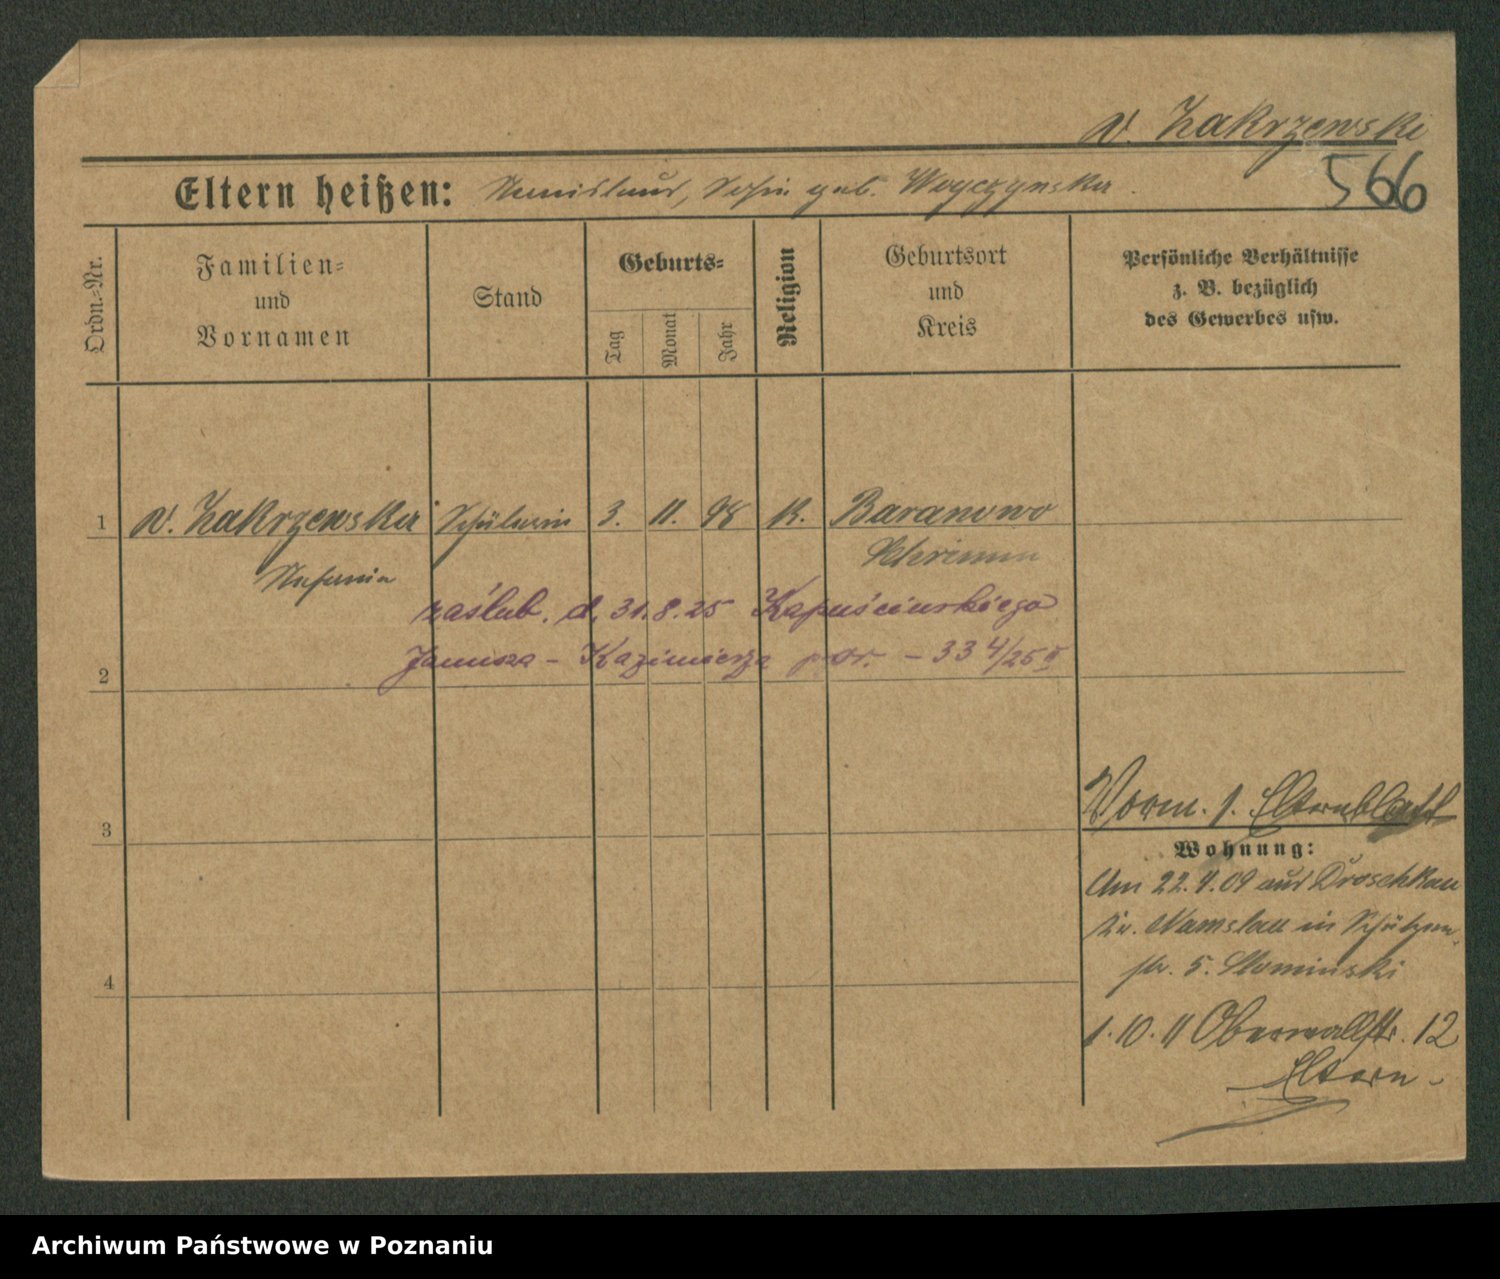 v. Zakrzewski
566
Eltern heißen: Stanislaus, Sofie geb. Woyczynska.
Ordn.-Nr.
Familien-
und
Vornamen
Stand
Geburts-
Tag
Monat
Jahr
Religion
Geburtsort
und
Kreis
Persönliche Verhältnisse
z. B. bezüglich
des Gewerbes usw.
1 v. Zakrzewska Schülerin 3. 11. 98 K. Baranowo
Stefania Schrimm
zaślub. d. 31.8.25 Kapuścińskiego
Janusza - Kazimierza por. - 33 4/25
2
3
4
Vorm. s. Elternblatt
Wohnung:
Am 22.4.09 aus Droschkau
Kr. Namslau in Schützen-
str. 5. Slominski
1.10.11 Oberwallstr. 12
Eltern.
Archiwum Państwowe w Poznaniu